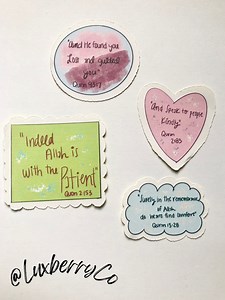 "And He found you
Lost and guided
you"
Quran 93:7
"And Speak to people
Kindly"
Quran
2:83
"Indeed
Allah is
with the Patient"
Quran 2:153
"Surely in the remembrance
of Allah
do hearts find comfort"
Quran 13:28
@LuxberryCo